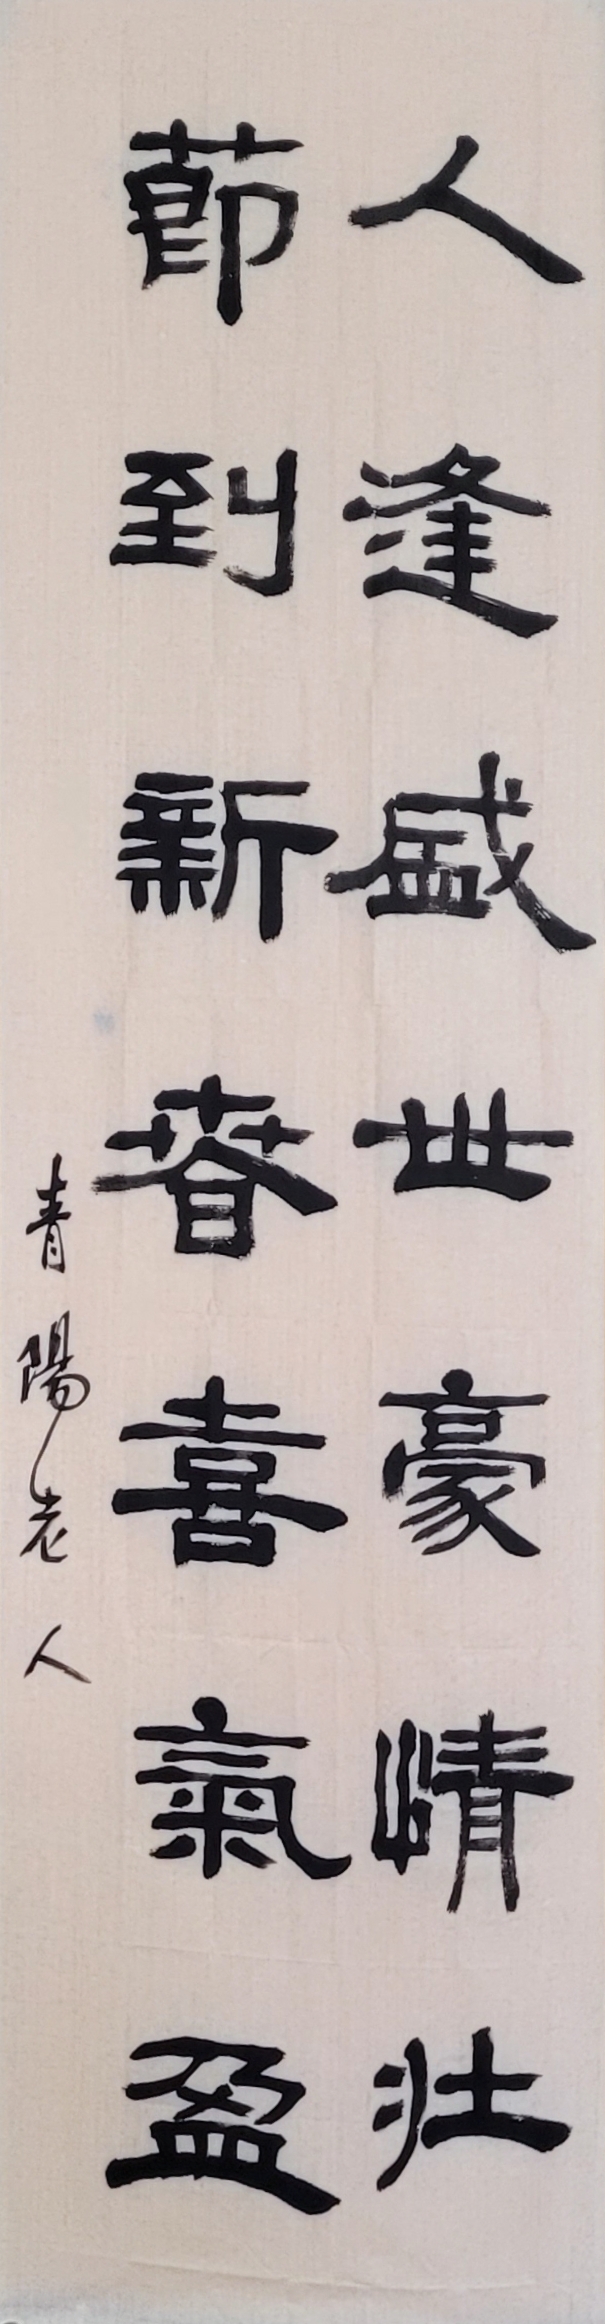 人逢盛世豪情壯
節到新春喜氣盈
青陽老人